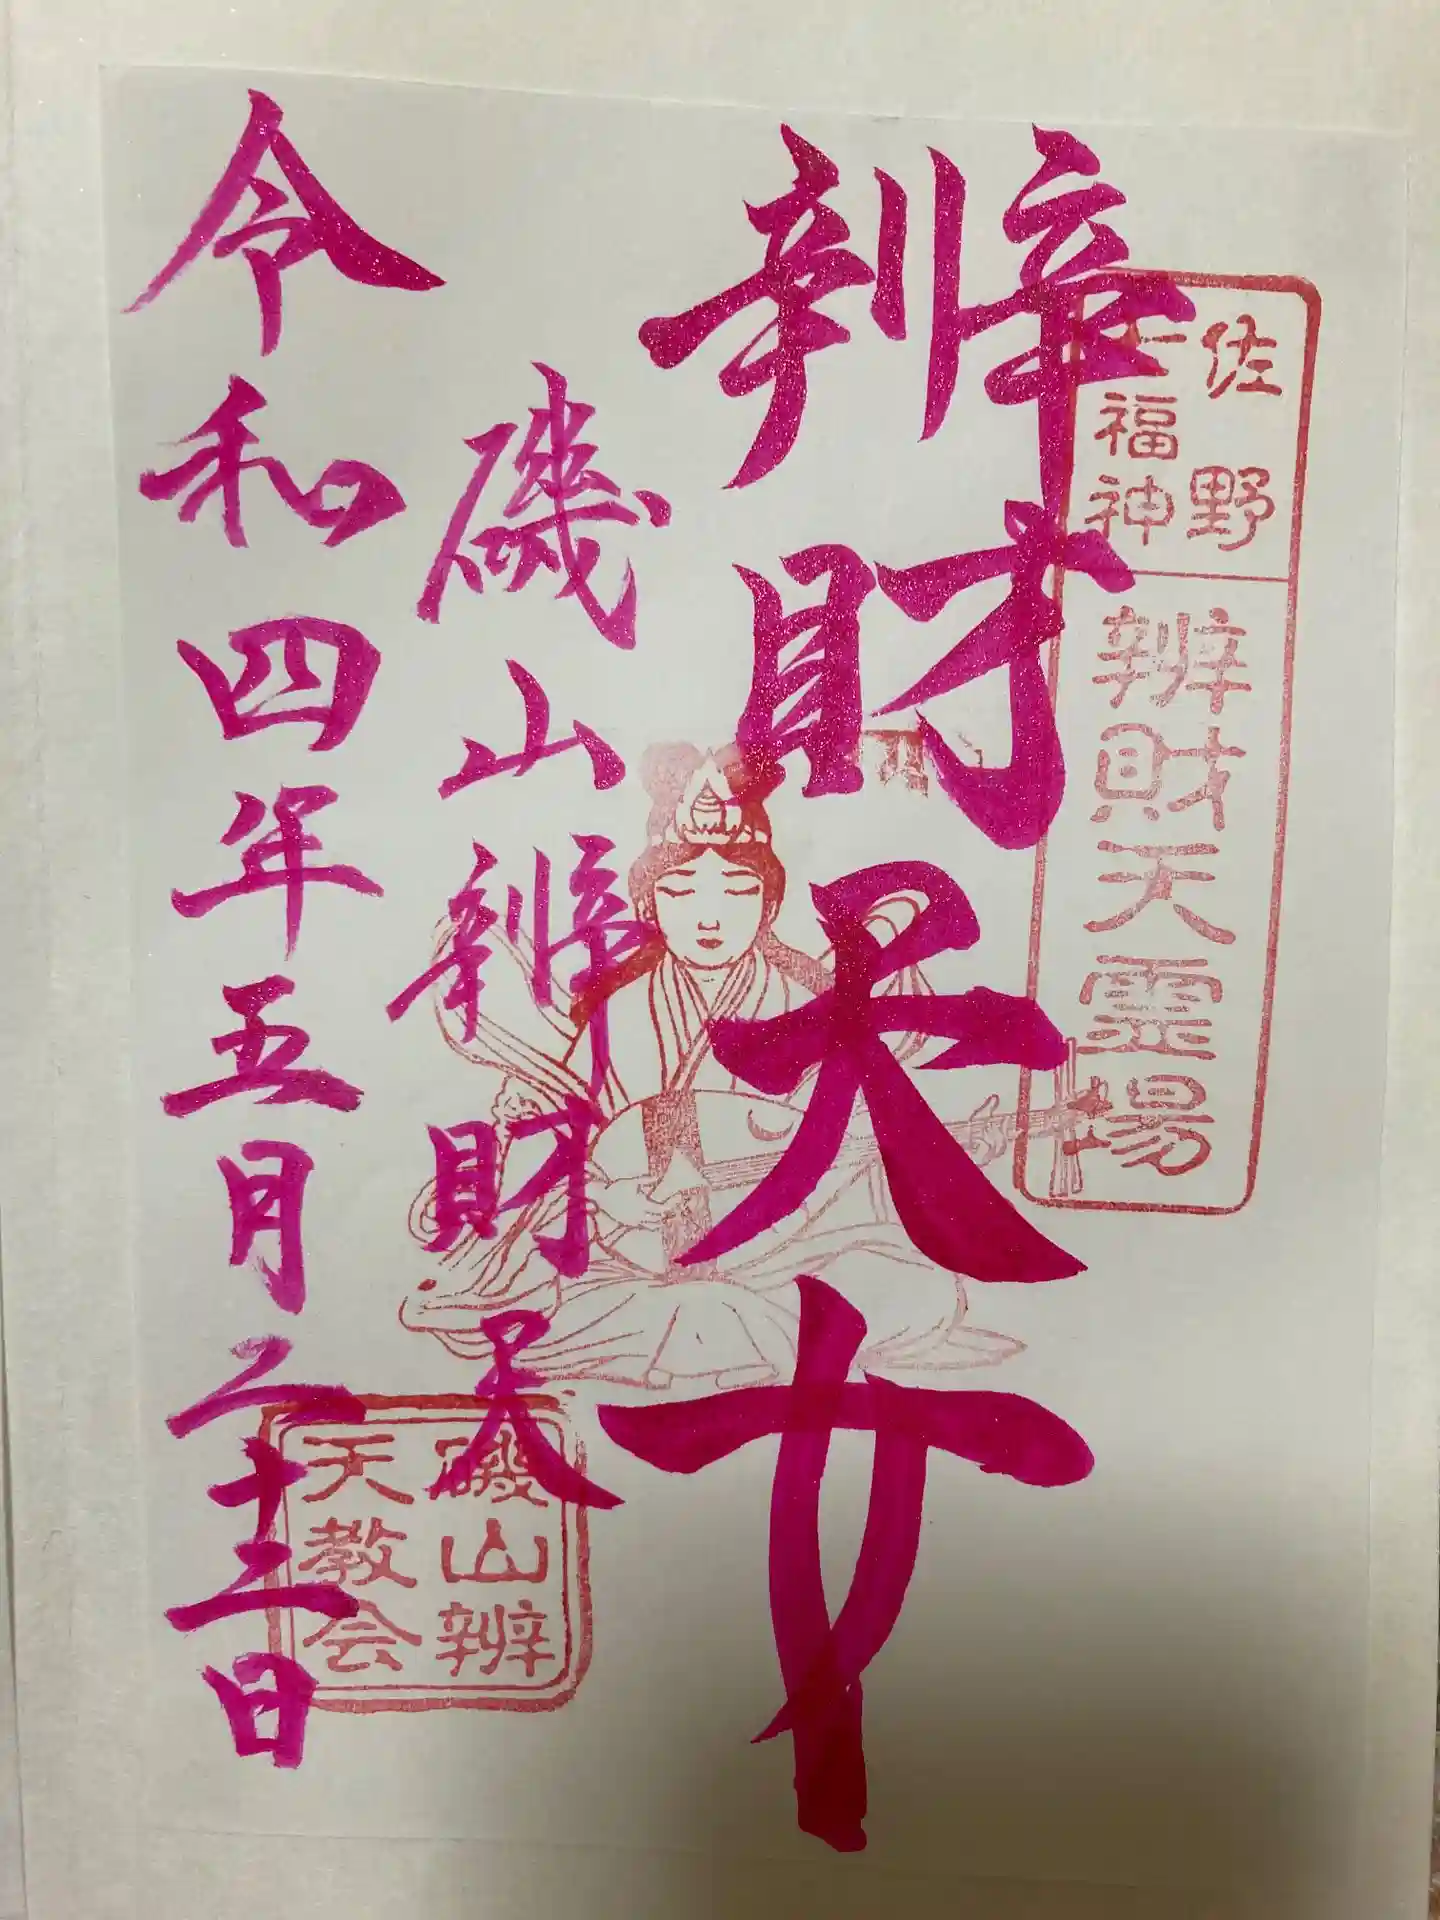 佐野
七福神
辨財天霊場
辨財天女
磯山辨財天
令和四年五月二十二日
磯山辨
天教会